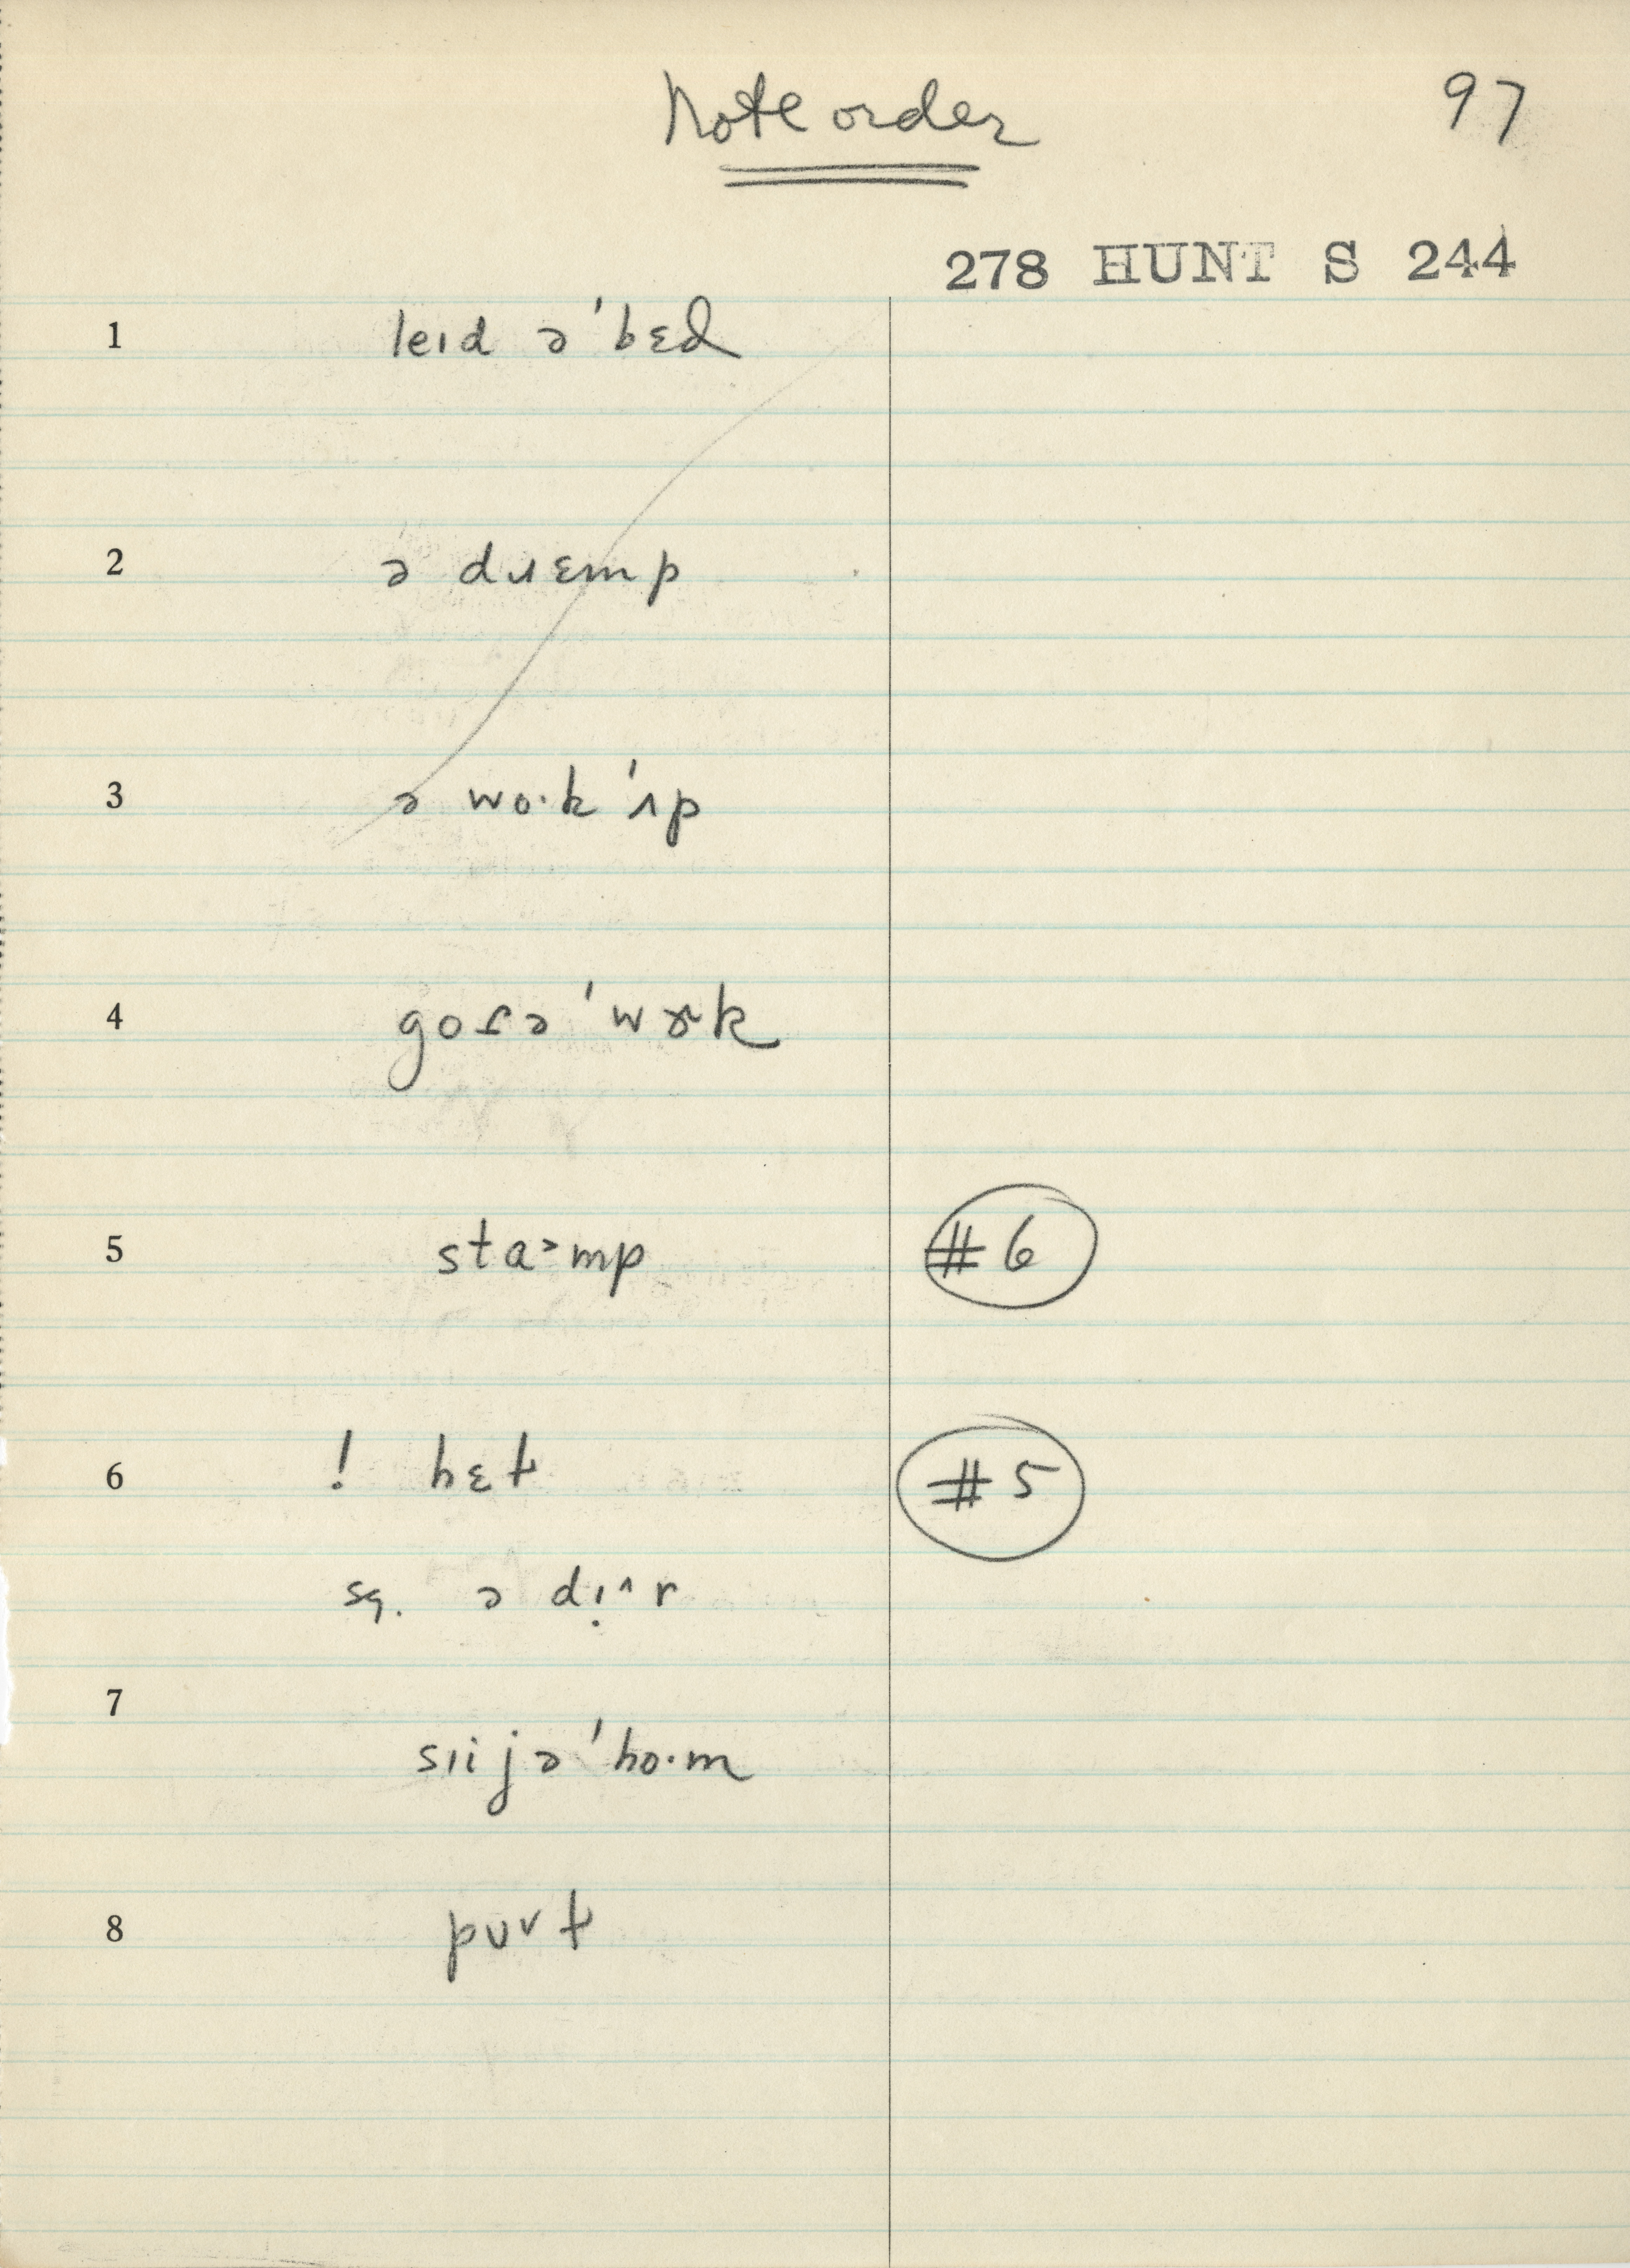 Note order
97
278 HUNT S 244
1 leɪd ə ˈbɛd
2 ə dɹɛmp
3 ə wo·k ˈʌp
4 ˈwɝk
5 sta˃mp #6
6 ! hɛt #5
sq. ə dɪ̣^r
7 sɪijə ˈho·m
8 pʊ˅t